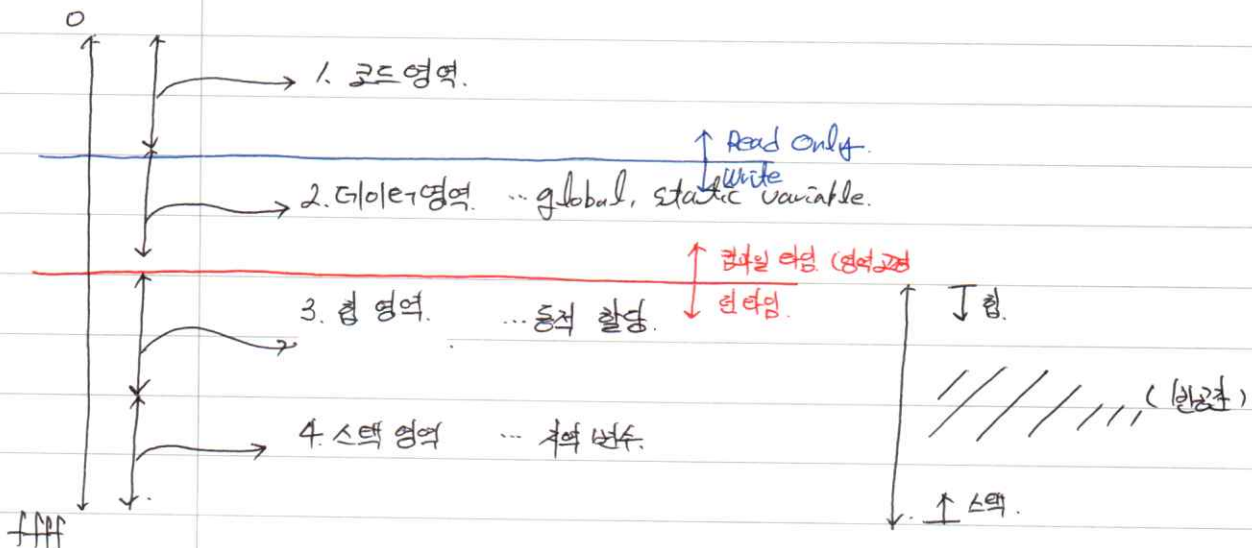 0
1. 코드영역.
↑ Read Only.
↓ Write
2. 데이터영역. … global, static variable.
↑ 컴파일 타임 (영역고정
3. 힙 영역. … 동적 할당. ↓ 런타임.
↓ 힙.
(빈공간)
4. 스택 영역 … 지역 변수.
↑ 스택.
ffff